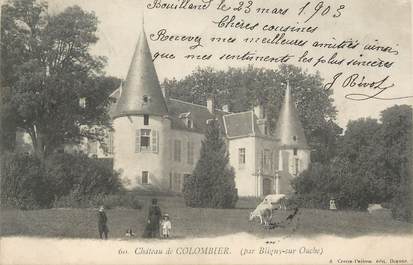 Bouilland le 23 mars 1903
Chères cousines
Recevez mes meilleures amitiés ainsi
que mes sentiments les plus sincères
J. Révol
60. Château de COLOMBIER. (par Bligny-sur Ouche)
édit.